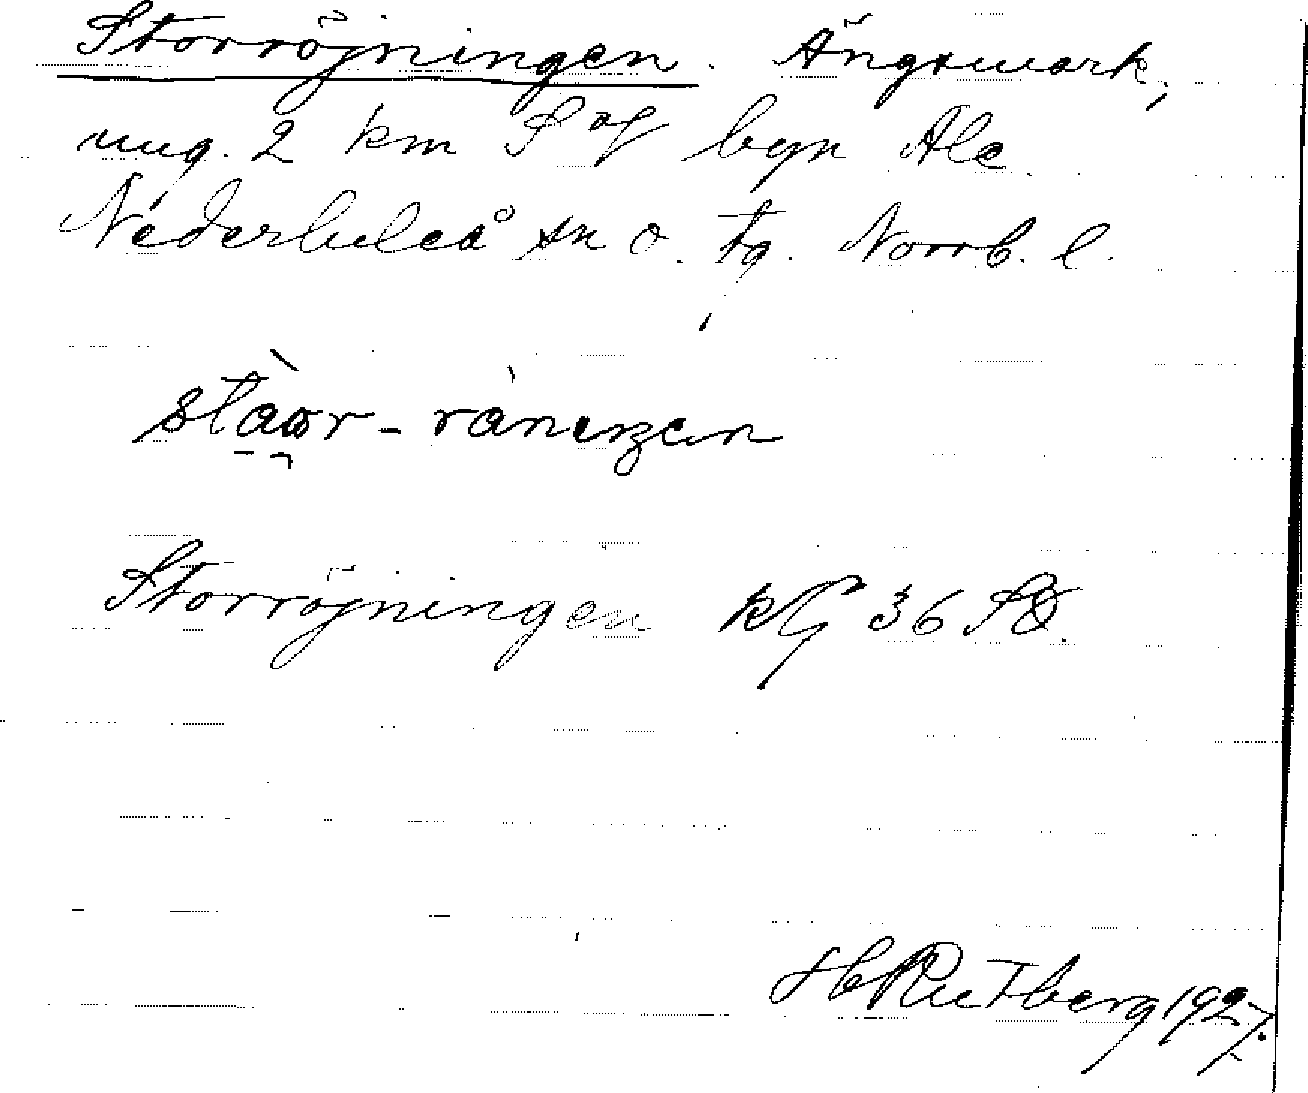 Storröjningen. Ängsmark,
ung. 2 km S of byn Ale
Nederluleå sn o. tg. Norrb. l.
Storröjningen kG 36 SO.
H Rutberg 1927.